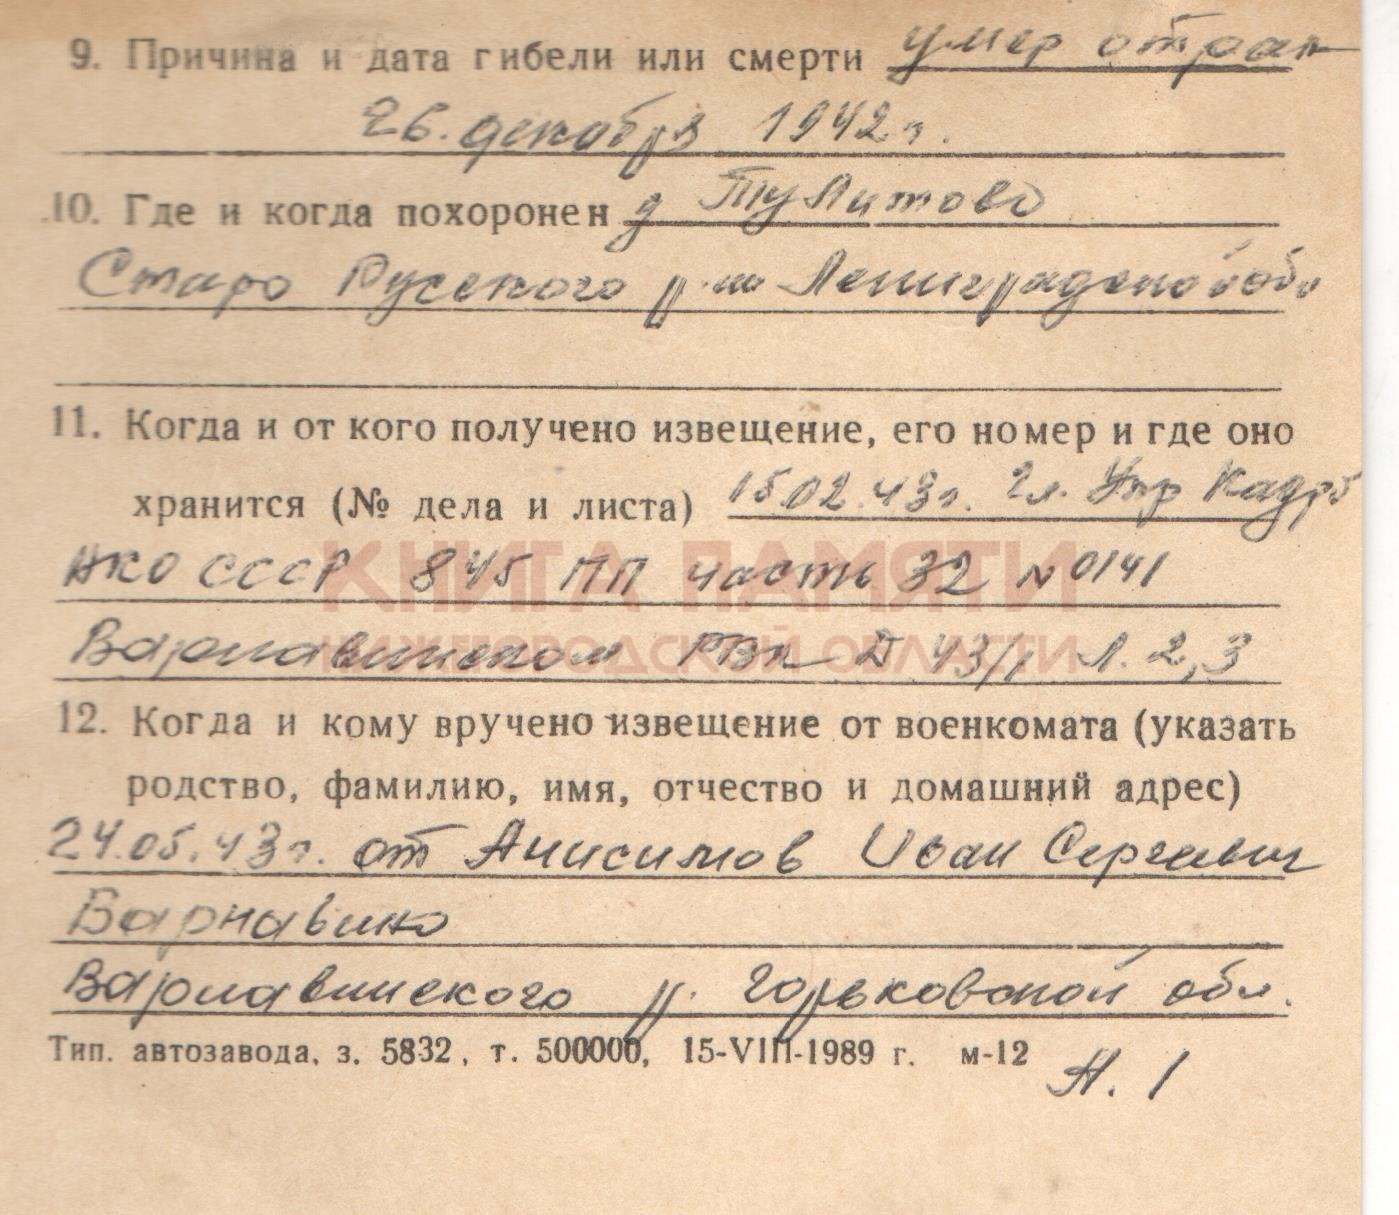 9. Причина и дата гибели или смерти умер от ран
26. декабря 1942 г.
10. Где и когда похоронен д Тулитово
Старо Русского р-на Ленинградской обл
11. Когда и от кого получено извещение, его номер и где оно
хранится (№ дела и листа) 15.02.43г. Гл. Упр Кадров
НКО СССР 845 ПП часть 32 № 0141
КНИГА ПАМЯТИ
НИЖЕГОРОДСКОЙ ОБЛАСТИ
Варнавинском РВк Д 43/1 Л. 2,3
12. Когда и кому вручено извещение от военкомата (указать
родство, фамилию, имя, отчество и домашний адрес)
24.05.43г. от Анисимов Иван Сергеевич
Варнавино
Варнавинского р. Горьковской обл.
Тип. автозавода, з. 5832, т. 500000, 15-VIII-1989 г. м-12